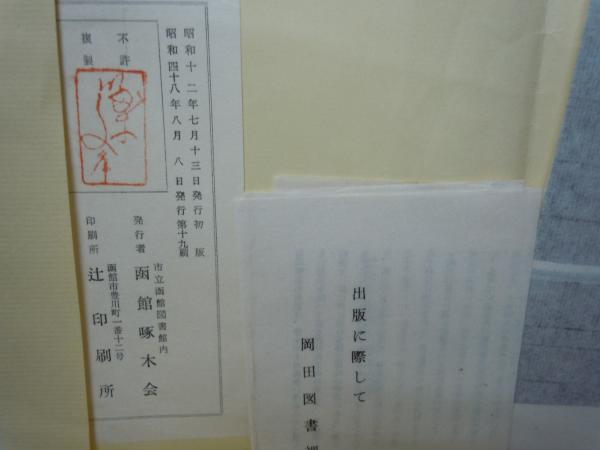 昭和十二年七月十三日発行初版
昭和四十八年八月八日発行第十九刷
不許
複製
市立函館図書館内
発行者 函館啄木会
函館市豊川町一番十二号
印刷所 辻印刷所
出版に際して
岡田図書